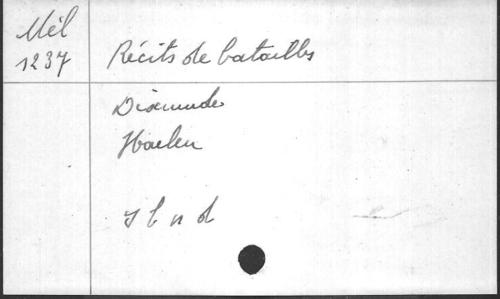 Mél
1237
Récits de batailles
Dixmude
Haelen
s l n d